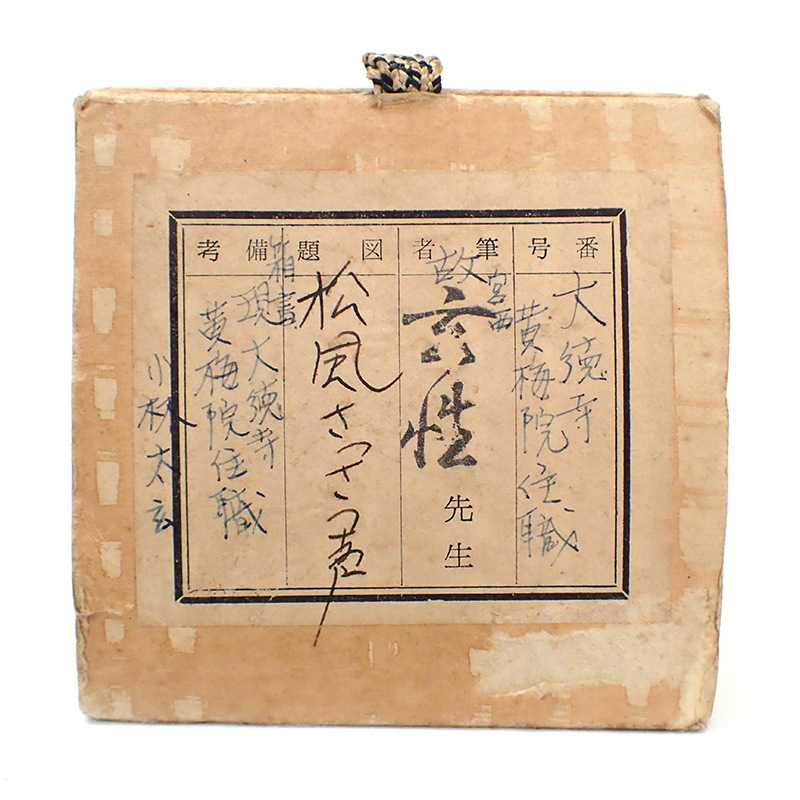 番号
大徳寺
黄梅院住職
筆者
故
宮西
玄性
先生
図題
松風さっさつ声
備考
箱書
現大徳寺
黄梅院住職
小林太玄